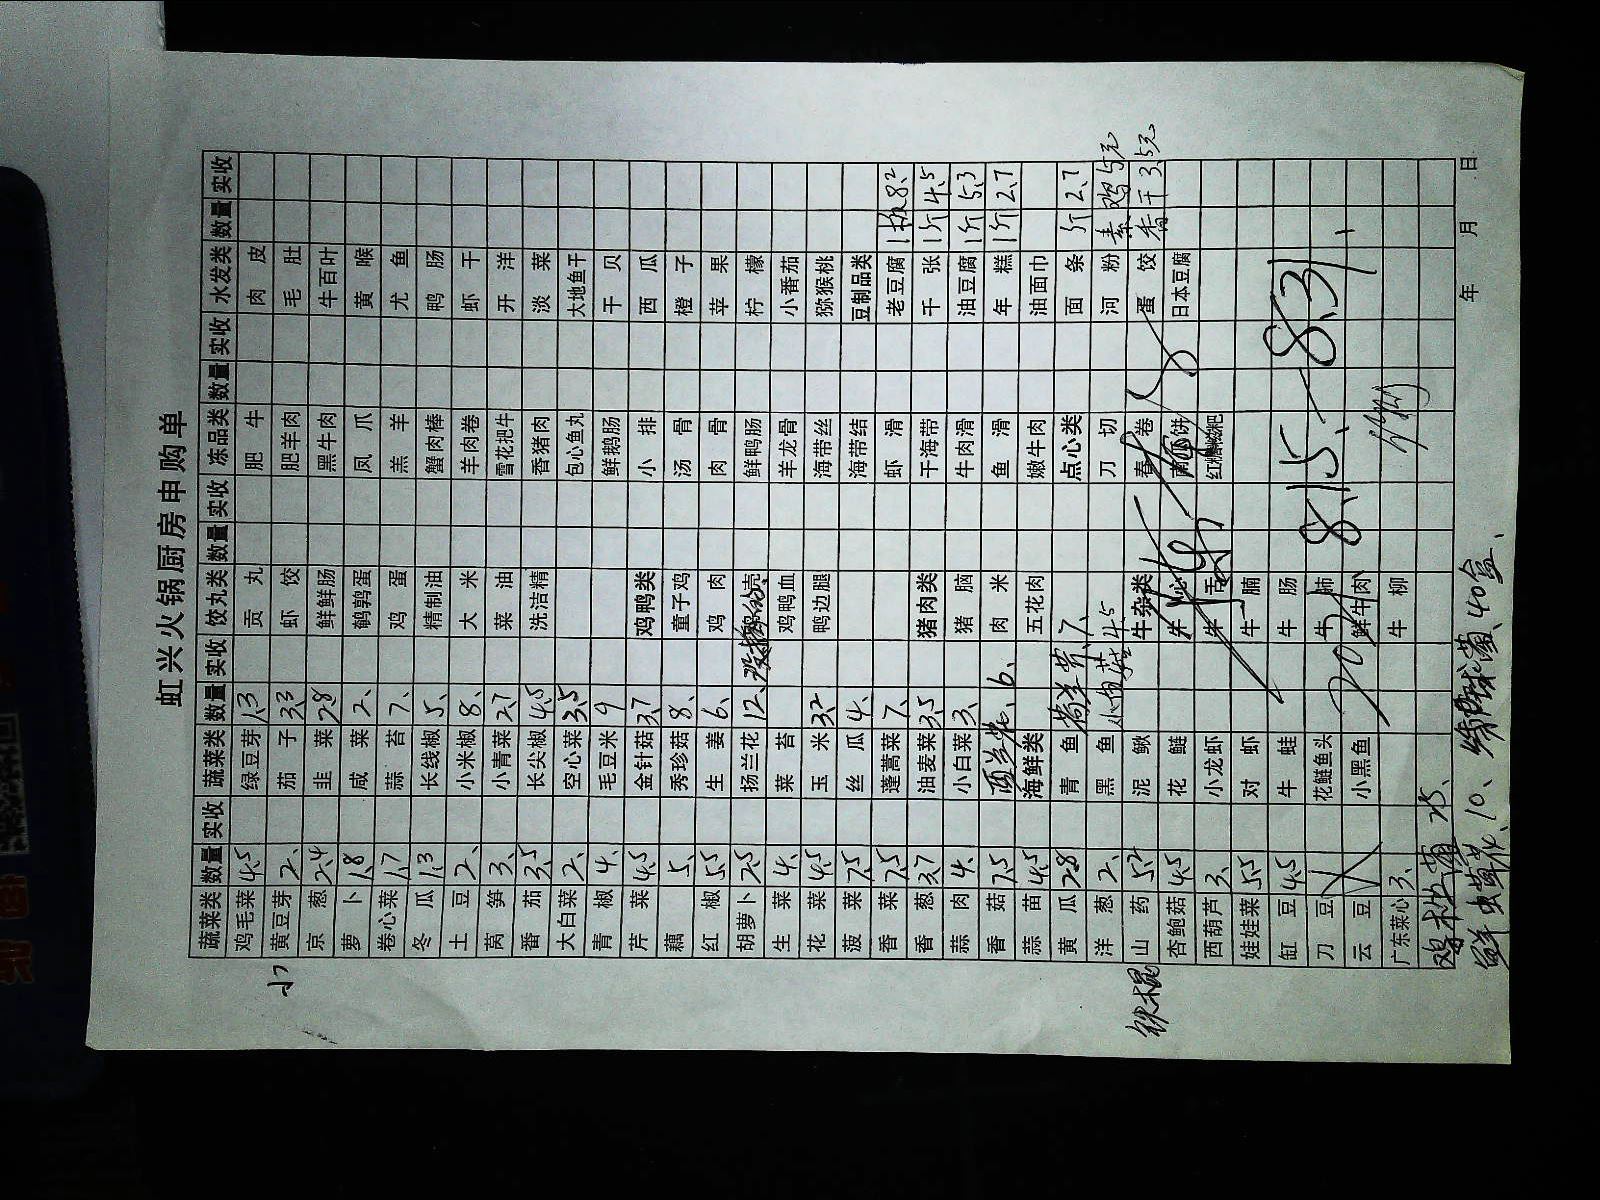 虹兴火锅厨房申购单
蔬菜类 数量 实收 蔬菜类 数量 实收 饺丸类 数量 实收 冻品类 数量 实收 水发类 数量 实收
鸡毛菜 4.5 绿豆芽 1.3 贡丸 肥牛 肉皮
黄豆芽 2、 茄子 3.3 虾饺 肥羊肉 毛肚
小 京葱 2.4 韭菜 2.8 鲜鲜肠 黑牛肉 牛百叶
萝卜 1.8 咸菜 2、 鹌鹑蛋 凤爪 黄喉
卷心菜 1.7 蒜苔 7、 鸡蛋 羔羊 尤鱼
冬瓜 1.3 长线椒 5、 精制油 蟹肉棒 鸭肠
土豆 2、 小米椒 8、 大米 羊肉卷 虾干
莴笋 3、 小青菜 2.7 菜油 雪花把牛 开洋
番茄 3.5 长尖椒 4.5 洗洁精 香猪肉 淡菜
大白菜 2、 空心菜 3.5 包心鱼丸 大地鱼干
青椒 4、 毛豆米 9 鲜鹅肠 干贝
芹菜 4.5 金针菇 3.7 鸡鸭类 小排 西瓜
藕 5、 秀珍菇 8、 童子鸡 汤骨 橙子
红椒 5.5 生姜 6、 鸡肉 肉骨 苹果
胡萝卜 2.5 扬兰花 12、 鲜鸭肠 柠檬
生菜 4、 菜苔 鸡鸭血 羊龙骨 小番茄
花菜 4.5 玉米 3.2 鸭边腿 海带丝 猕猴桃
菠菜 7.5 丝瓜 4、 海带结 豆制品类
香菜 7.5 蓬蒿菜 7、 虾滑 老豆腐 1板 8.2
香葱 3.7 油麦菜 3.5 猪肉类 干海带 千张 1斤 4.5
蒜肉 4、 小白菜 3、 猪脑 牛肉滑 油豆腐 1斤 5.3
香菇 7.5 西兰花 6、 肉米 鱼滑 年糕 1斤 2.7
蒜苗 4.5 海鲜类 五花肉 嫩牛肉 油面巾
黄瓜 2.8 青鱼 7、 点心类 面条 斤 2.7
洋葱 2、 黑鱼 4.5 刀切 河粉 素鸡 5元
铁棍 山药 5.2 泥鳅 牛杂类 春卷 蛋饺 香干 3.5元
杏鲍菇 4.5 花鲢 牛心 南瓜饼 日本豆腐
西葫芦 3、 小龙虾 牛舌
娃娃菜 5.5 对虾 牛腩
缸豆 4.5 牛蛙 牛肠
刀豆 花鲢鱼头 牛肺
云豆 小黑鱼 鲜牛肉
广东菜心 3、 牛柳
2021 8.15、—8.31、
年 月 日
鲜虫草花、10、 40盒、